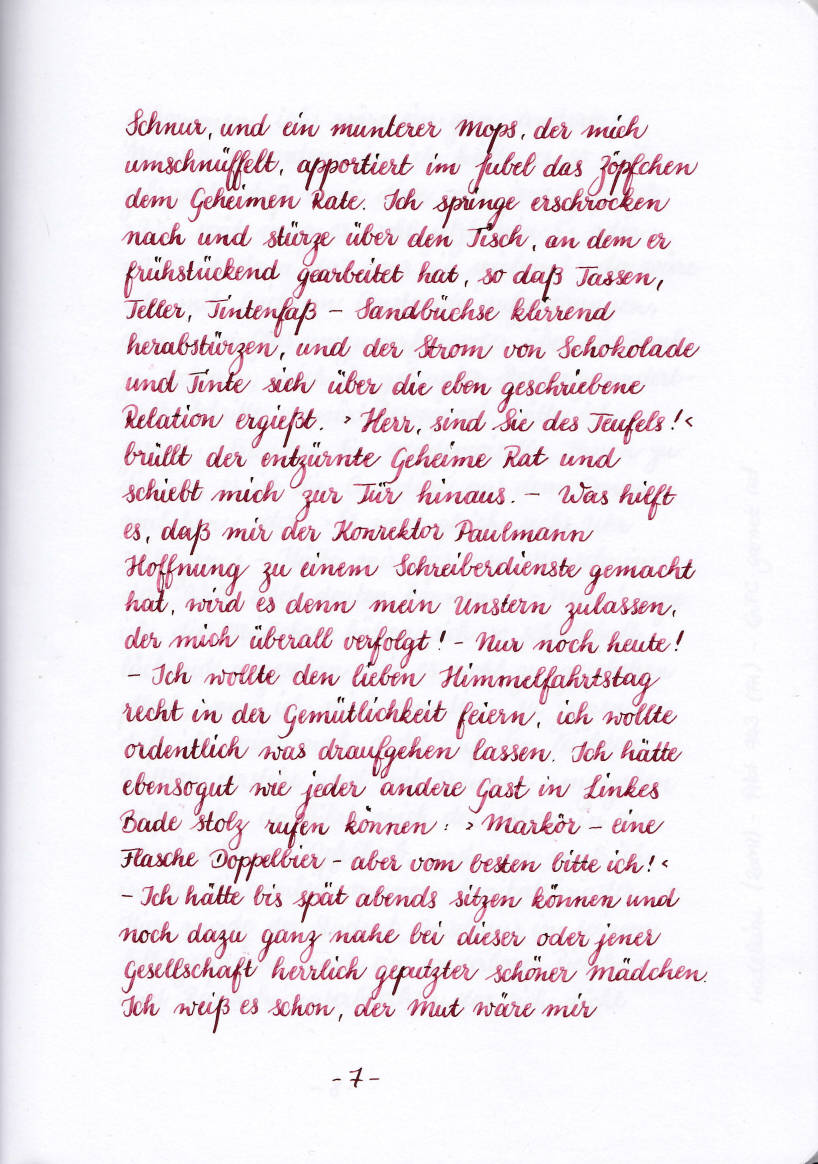 Schnur, und ein munterer Mops, der mich
umschnüffelt, apportiert im Jubel das Zöpfchen
dem Geheimen Rate. Ich springe erschrocken
nach und stürze über den Tisch, an dem er
frühstückend gearbeitet hat, so daß Tassen,
Teller, Tintenfaß – Sandbüchse klirrend
herabstürzen, und der Strom von Schokolade
und Tinte sich über die eben geschriebene
Relation ergießt. ›Herr, sind Sie des Teufels!‹
brüllt der entzürnte Geheime Rat und
schiebt mich zur Tür hinaus. – Was hilft
es, daß mir der Konrektor Paulmann
Hoffnung zu einem Schreiberdienste gemacht
hat, wird es denn mein Unstern zulassen,
der mich überall verfolgt! – Nur noch heute!
– Ich wollte den lieben Himmelfahrtstag
recht in der Gemütlichkeit feiern, ich wollte
ordentlich was draufgehen lassen. Ich hätte
ebensogut wie jeder andere Gast in Linkes
Bade stolz rufen können: ›Markör – eine
Flasche Doppelbier – aber vom besten bitte ich!‹
– Ich hätte bis spät abends sitzen können und
noch dazu ganz nahe bei dieser oder jener
Gesellschaft herrlich geputzter schöner Mädchen.
Ich weiß es schon, der Mut wäre mir
- 7 -